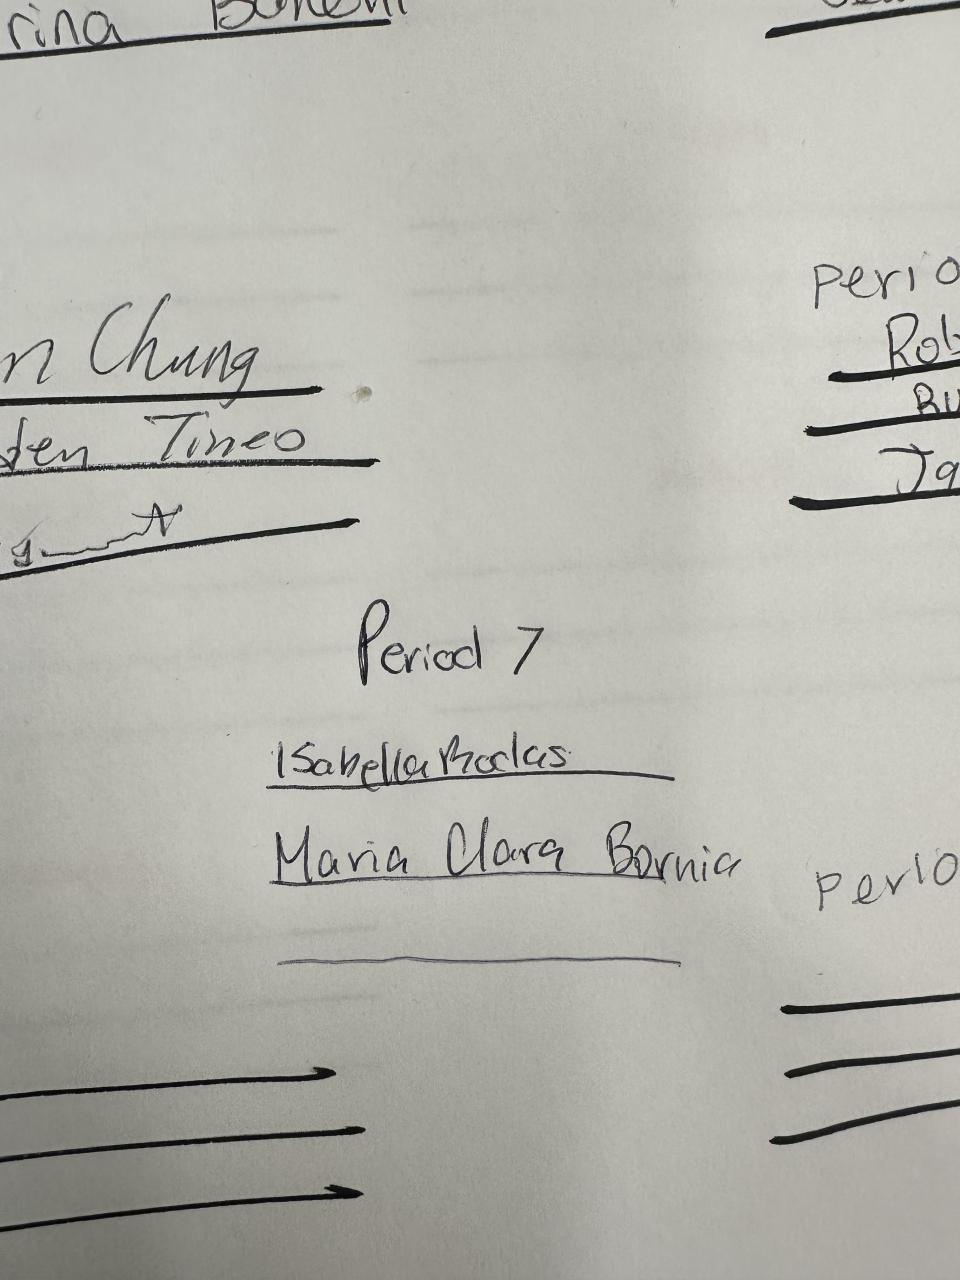 rina
Chung
Tineo
Period 7
Isabella Rodas
Maria Clara Bornia
perio
Rob
Bu
Ja
perio